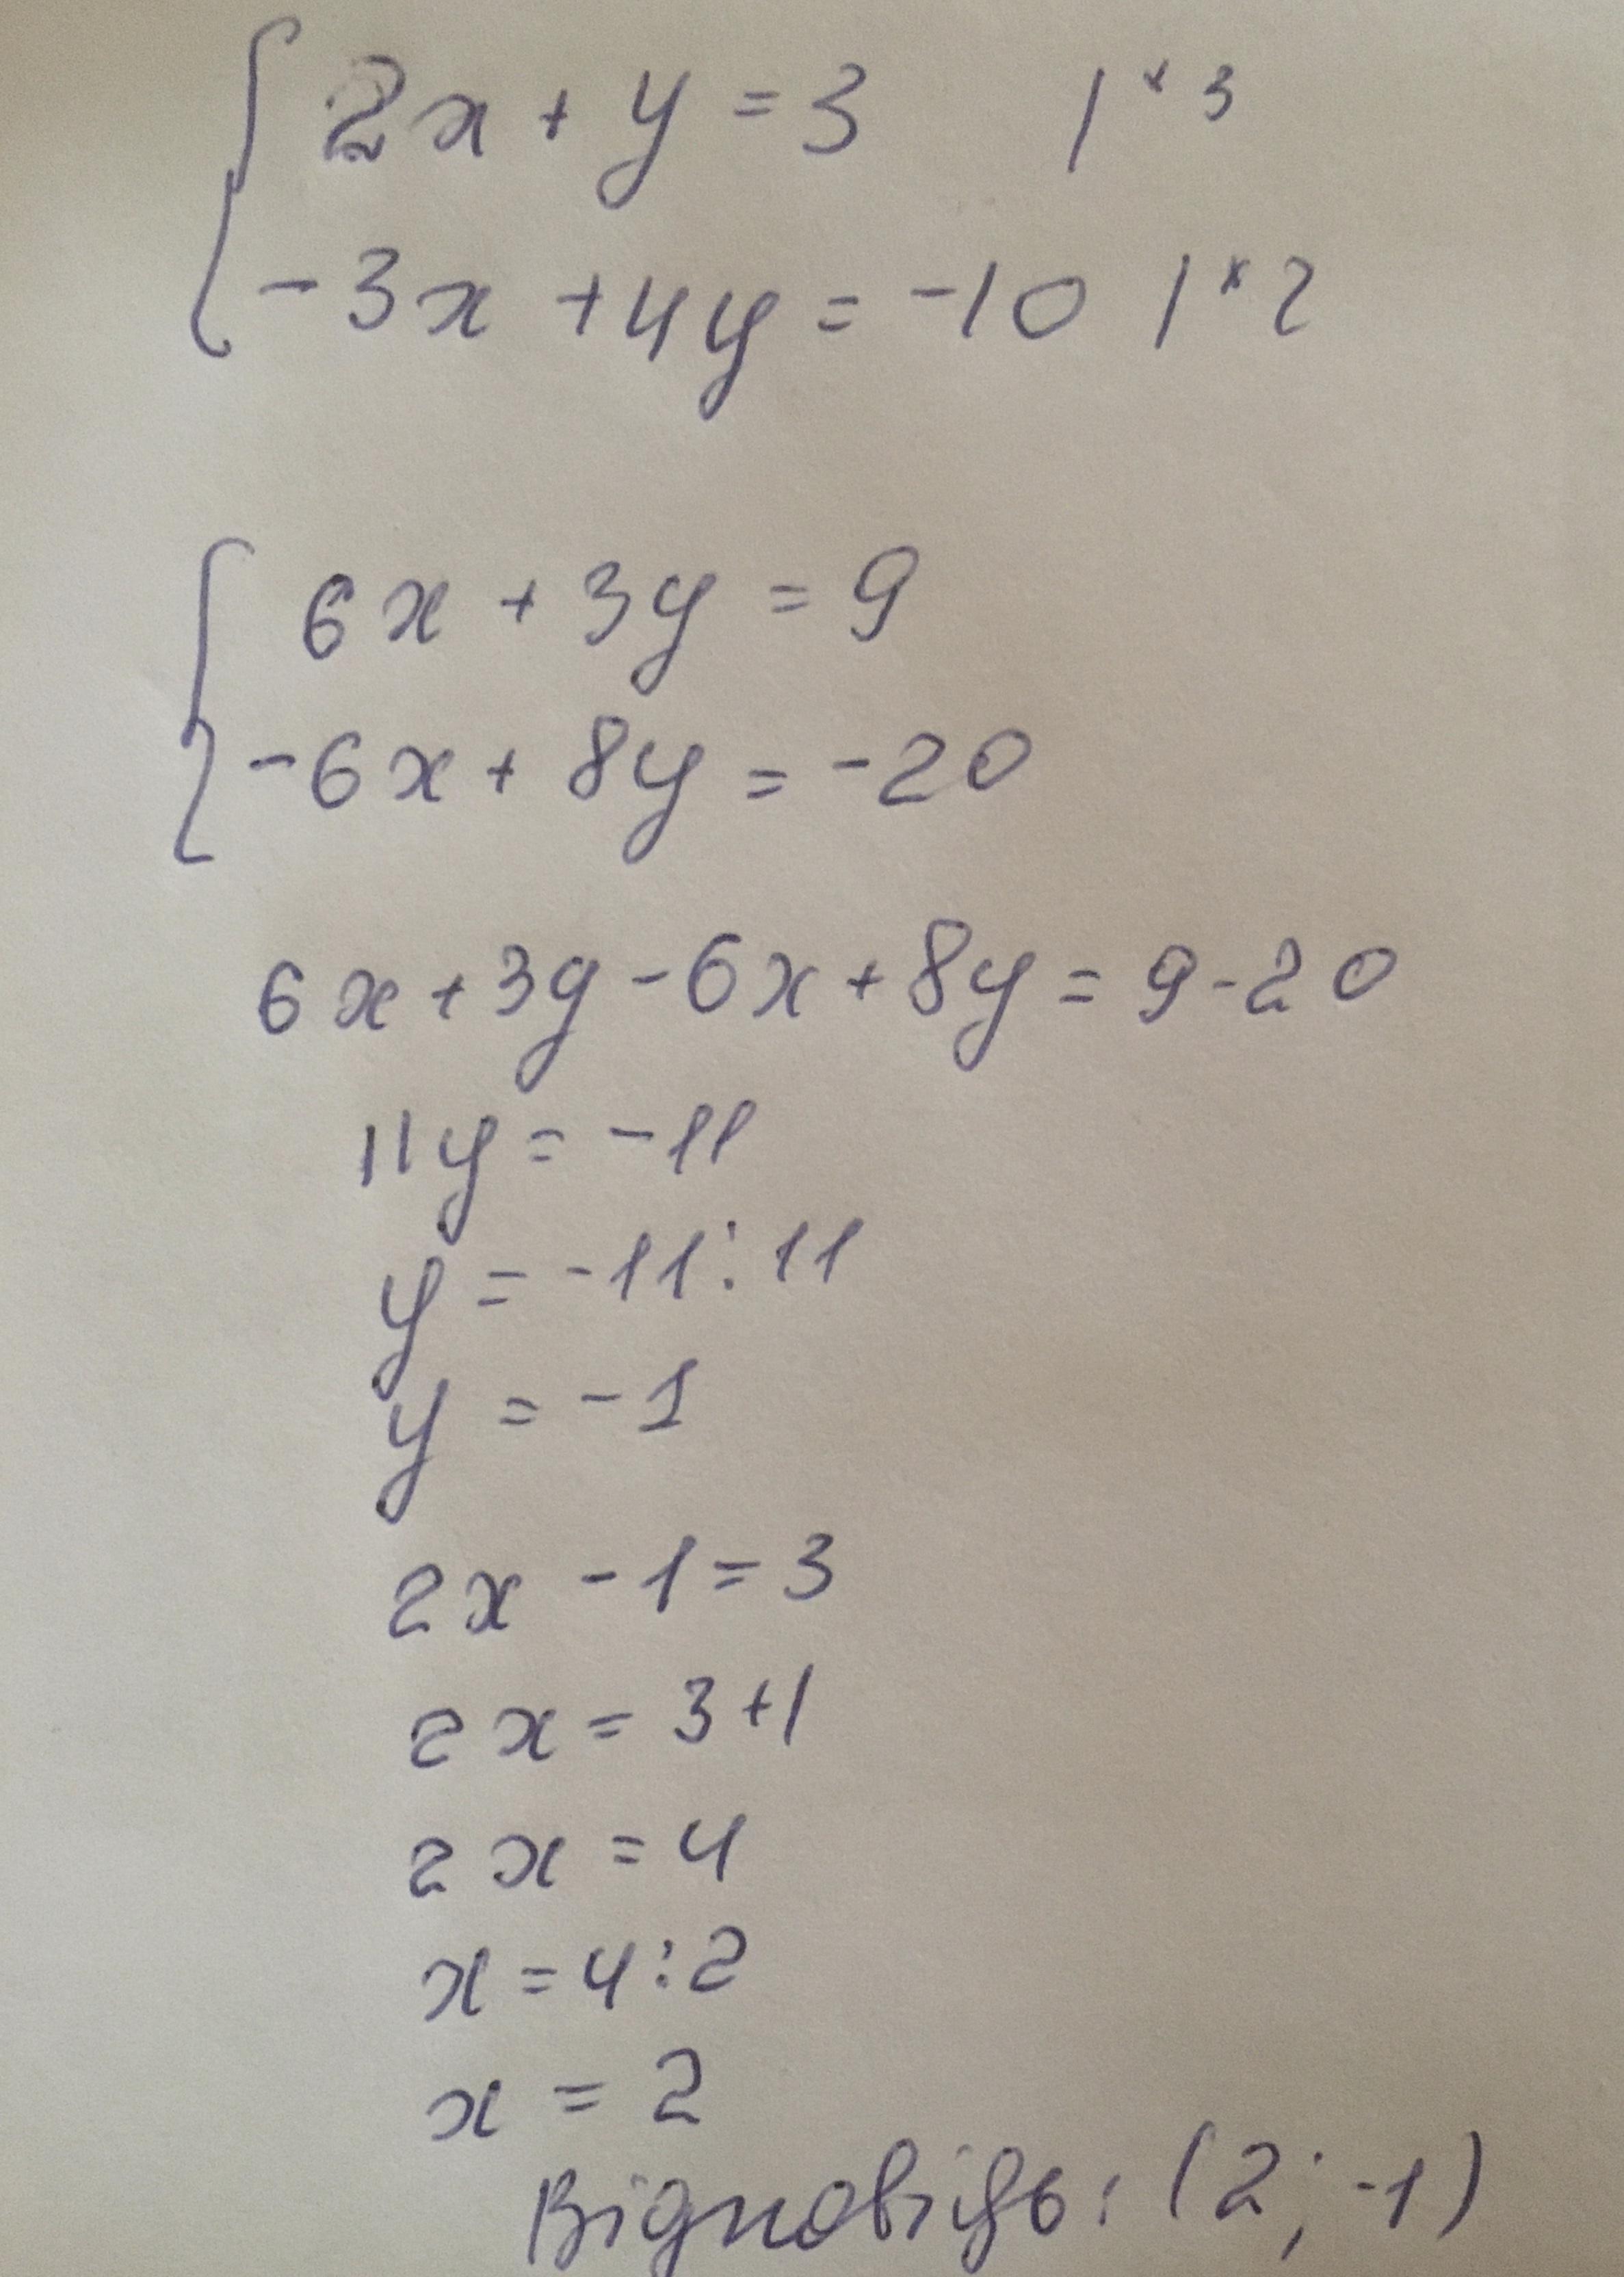 2x + y = 3 | * 3
-3x + 4y = -10 | * 2
6x + 3y = 9
-6x + 8y = -20
6x + 3y - 6x + 8y = 9 - 20
11y = -11
y = -11 : 11
y = -1
2x - 1 = 3
2x = 3 + 1
2x = 4
x = 4 : 2
x = 2
Відповідь: (2; -1)